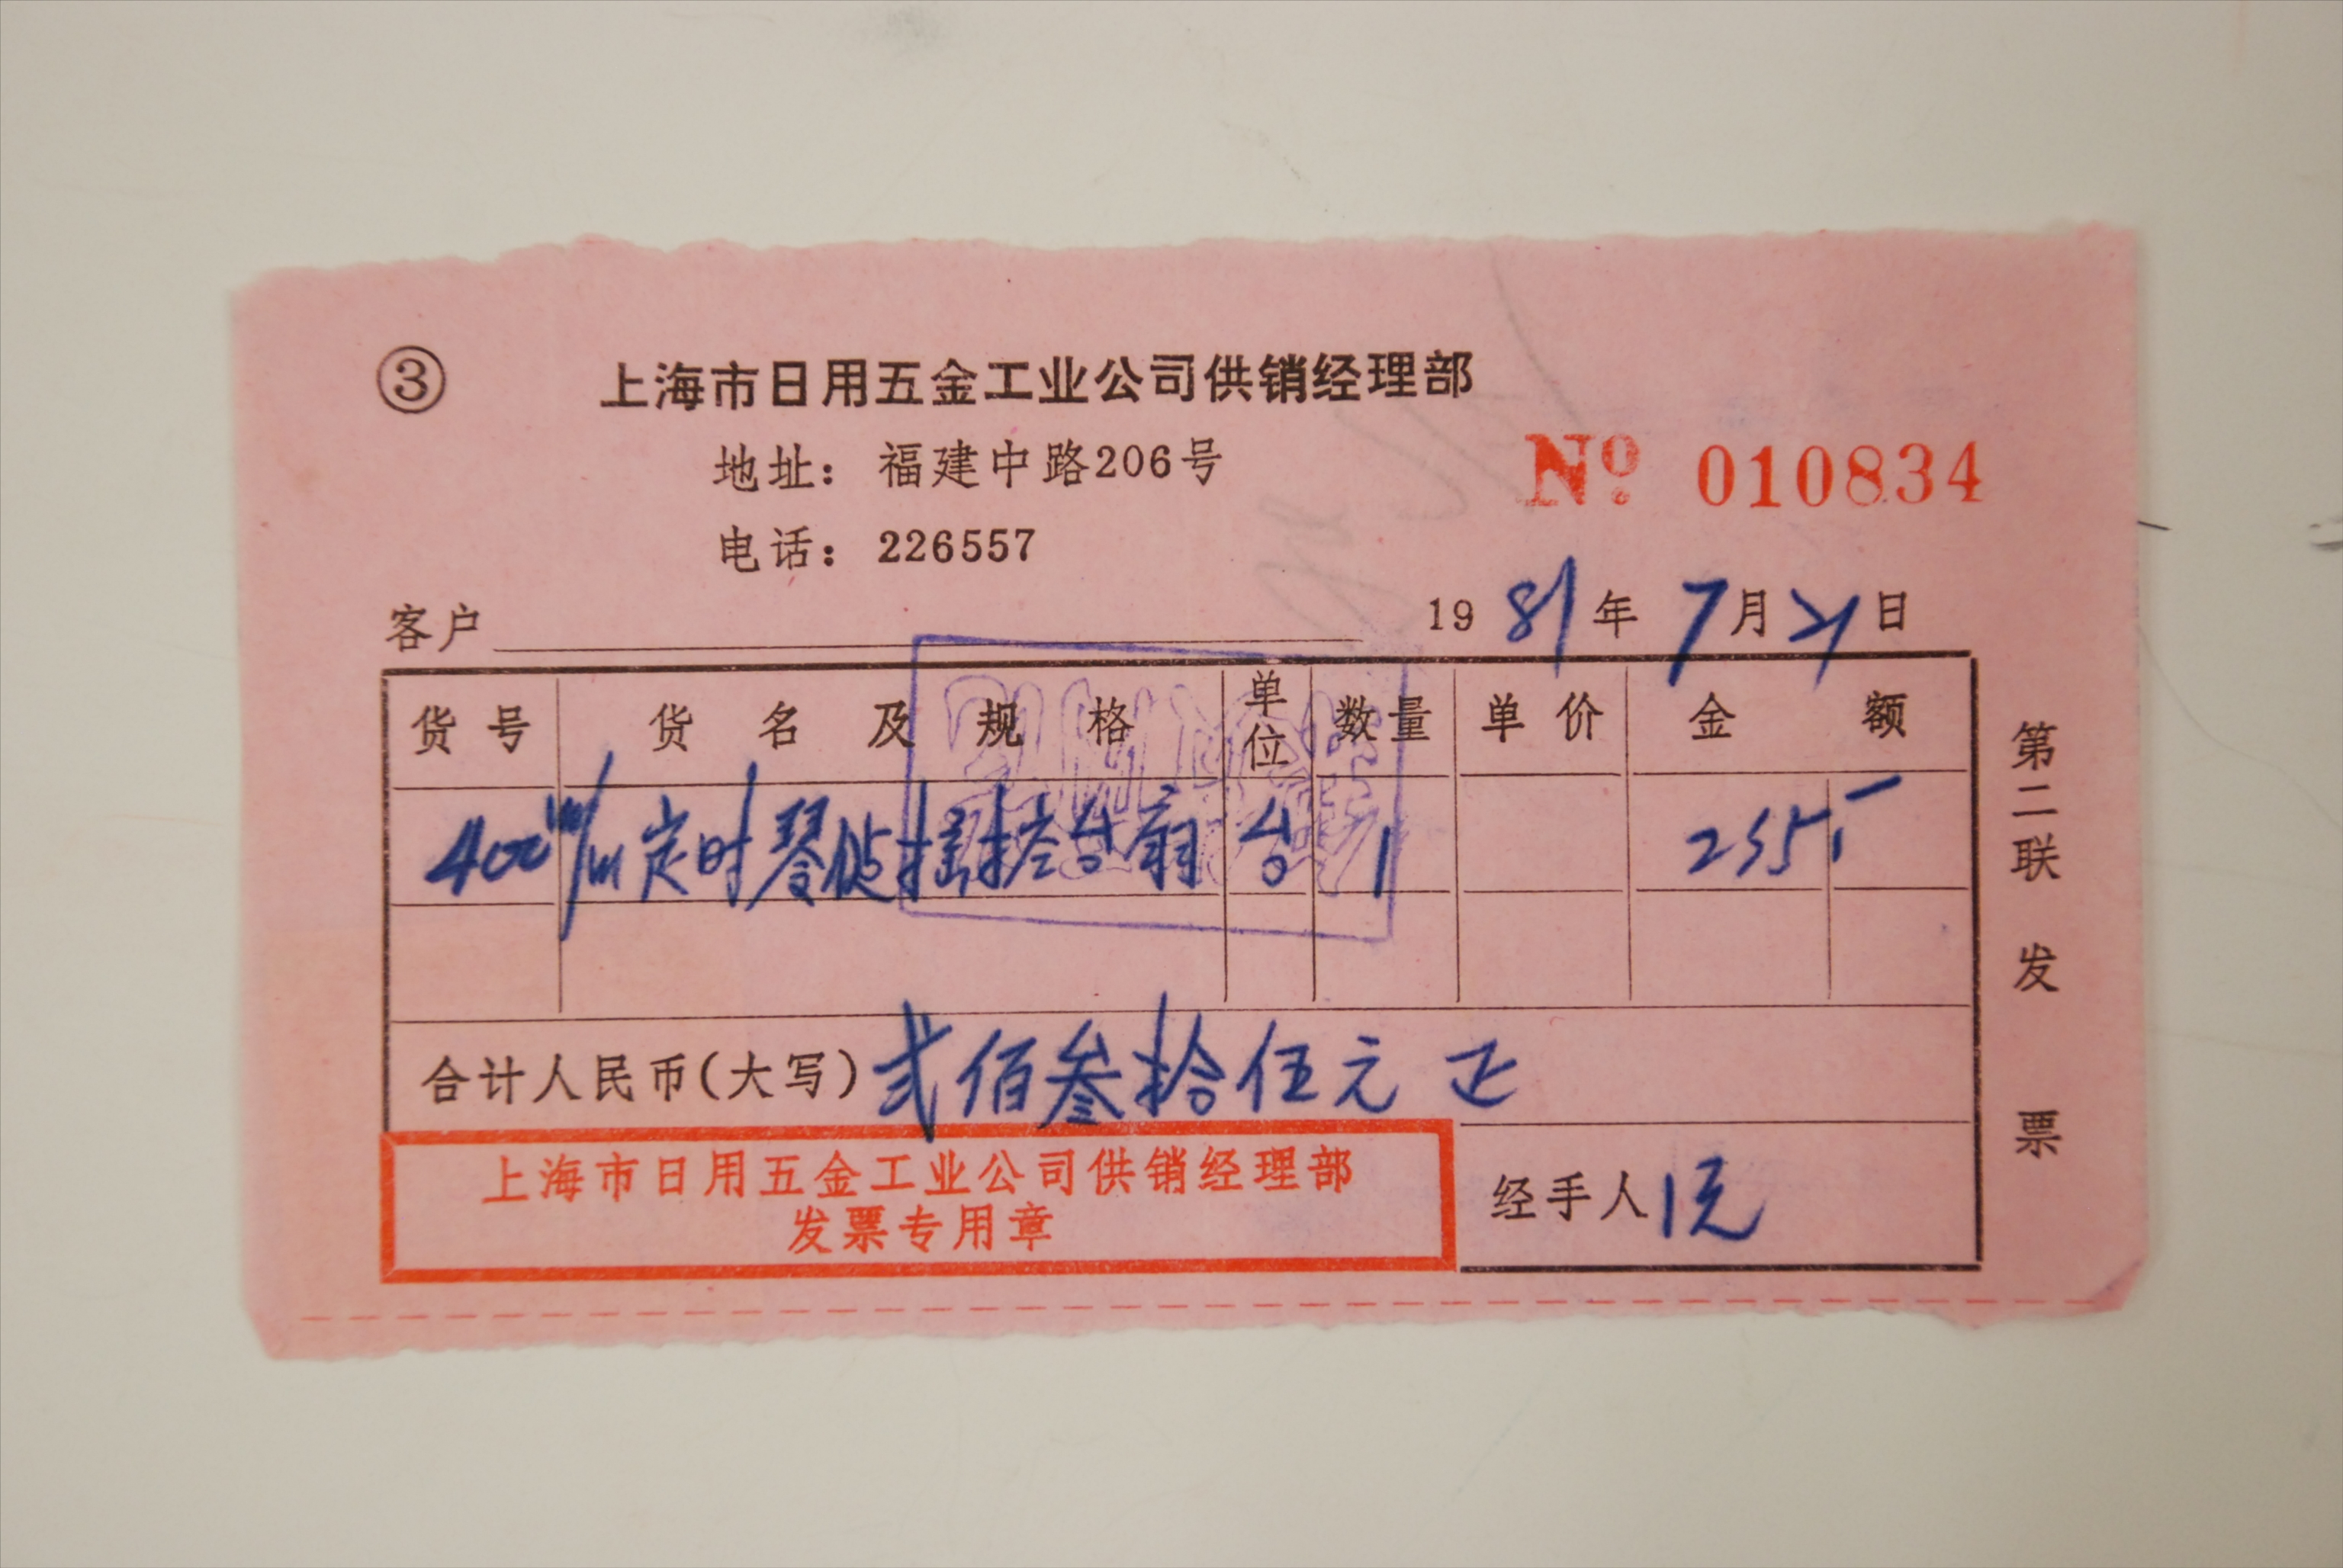 ③ 上海市日用五金工业公司供销经理部
地址：福建中路206号
Nº 010834
电话：226557
客户 1981年7月21日
货号 货名及规格 单位 数量 单价 金额
400m/m定时琴键摇控台扇 台 1 235.-
合计人民币(大写)弍佰叁拾伍元正
上海市日用五金工业公司供销经理部
发票专用章
经手人
第二联 发票